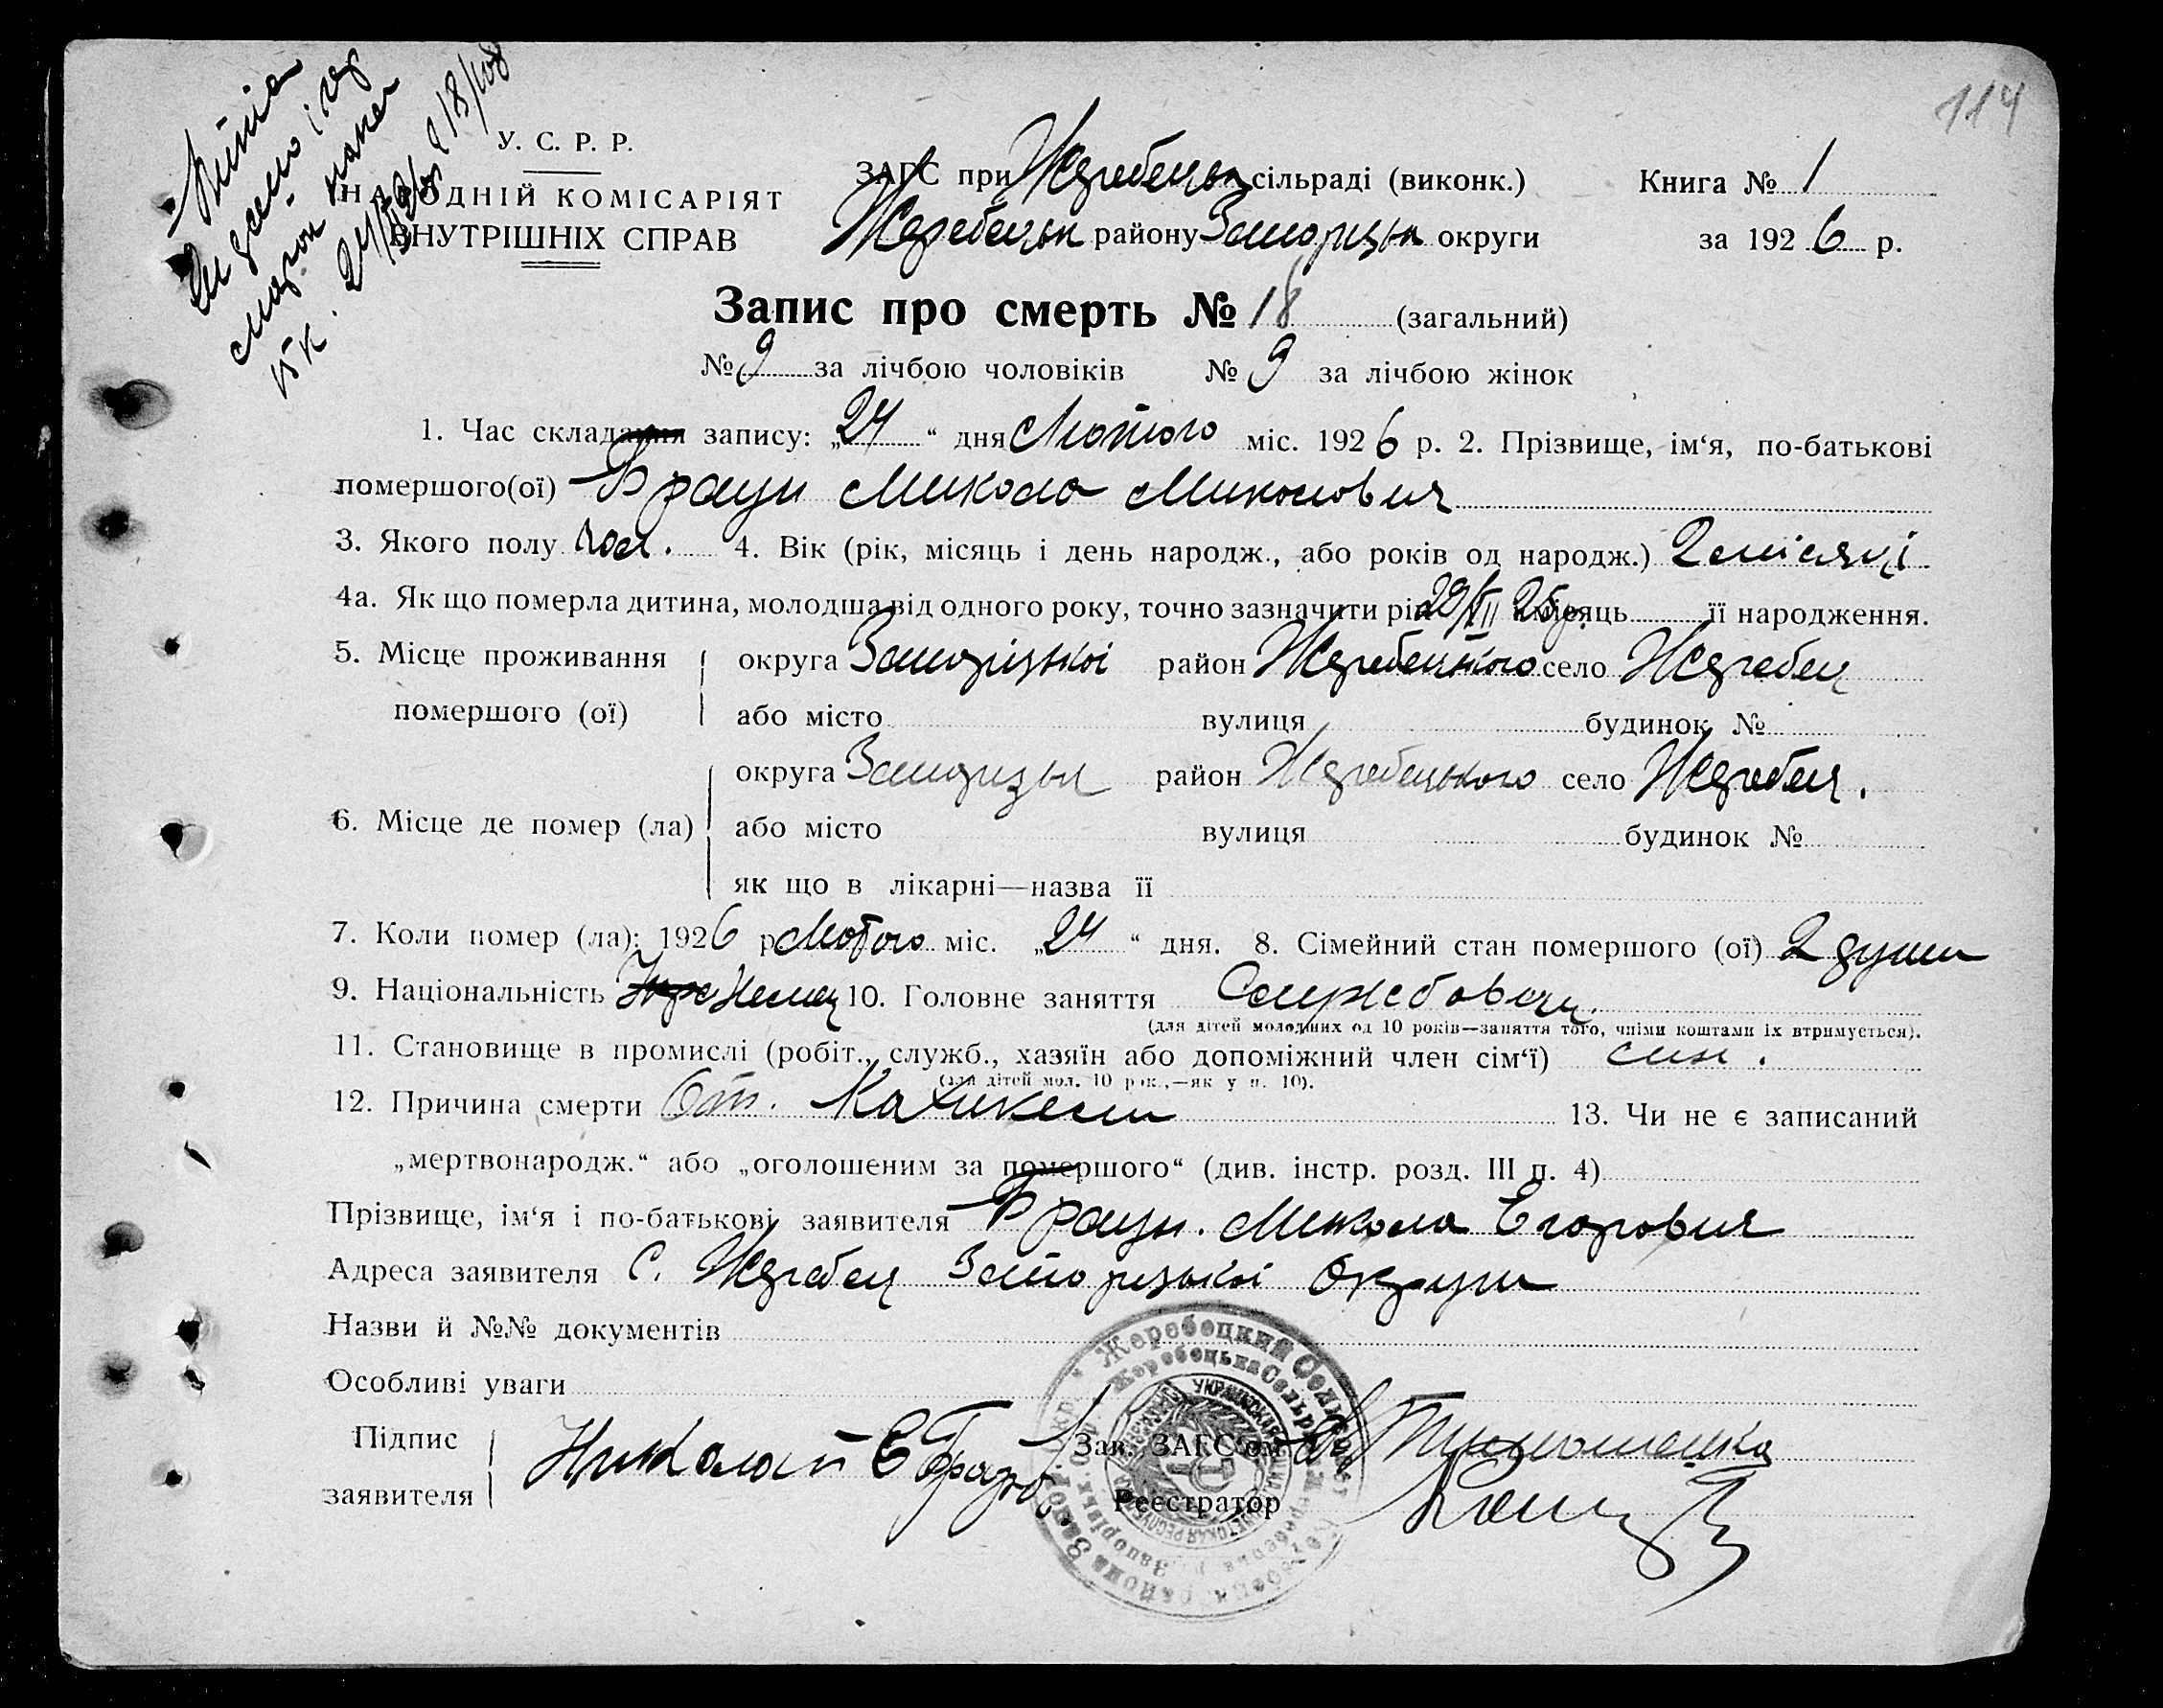 114
У. С. Р. Р.
НАРОДНІЙ КОМІСАРІЯТ
ВНУТРІШНІХ СПРАВ
ЗАГС при Жеребецьк сільраді (виконк.) Книга № 1
Жеребецьк району Запорізьк округи за 1926 р.
Запис про смерть № 18 (загальний)
№ 9 за лічбою чоловіків № 9 за лічбою жінок
1. Час складання запису: „24“ дня Лютого міс. 1926 р. 2. Прізвище, ім‘я, по-батькові
помершого(ої) Браун Микола Миколович
3. Якого полу чол. 4. Вік (рік, місяць і день народж., або років од народж.) 2 місяці
4а. Як що померла дитина, молодша від одного року, точно зазначити рік 29/XII 25р. місяць її народження.
5. Місце проживання округа Запорізької район Жеребецького село Жеребец
помершого (ої) або місто вулиця будинок №
округа Запоризьк район Жеребецького село Жеребец.
6. Місце де помер (ла) або місто вулиця будинок №
як що в лікарні—назва її
7. Коли помер (ла): 1926 р. Лютого міс. „24“ дня. 8. Сімейний стан помершого (ої) 2 души
9. Національність Немец 10. Головне заняття Службовець.
(для дітей молодших од 10 років—заняття того, чиїми коштами їх втримується).
11. Становище в промислі (робіт., служб., хазяїн або допоміжний член сім‘ї) син.
(для дітей мол. 10 рок.,—як у п. 10).
12. Причина смерти От. 13. Чи не є записаний
„мертвонародж.“ або „оголошеним за помершого“ (див. інстр. розд. III п. 4)
Прізвище, ім‘я і по-батькові заявителя Браун. Микола Егорович
Адреса заявителя С. Жеребец Запорізької Округи
Назви й №№ документів
Особливі уваги
Підпис Николай Е Браун Зав. ЗАГС‘ом
заявителя Реєстратор